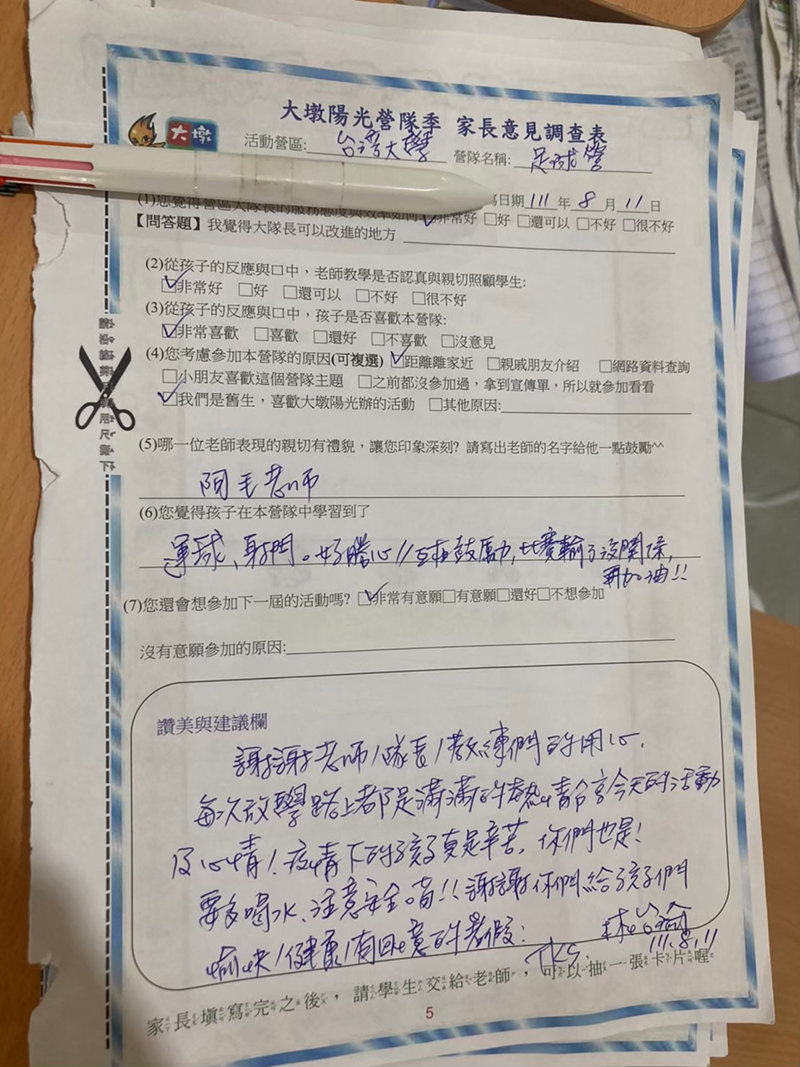 大墩陽光營隊季 家長意見調查表
大墩
活動營區: 台灣大學 營隊名稱: 足球營
日期 111 年 8 月 11 日
(1)您覺得營區大隊長的服務態度與效率如何 ☑非常好 □好 □還可以 □不好 □很不好
【問答題】我覺得大隊長可以改進的地方
(2)從孩子的反應與口中，老師教學是否認真與親切照顧學生:
☑非常好 □好 □還可以 □不好 □很不好
(3)從孩子的反應與口中，孩子是否喜歡本營隊:
☑非常喜歡 □喜歡 □還好 □不喜歡 □沒意見
(4)您考慮參加本營隊的原因(可複選) ☑距離離家近 □親戚朋友介紹 □網路資料查詢
□小朋友喜歡這個營隊主題 □之前都沒參加過，拿到宣傳單，所以就參加看看
☑我們是舊生，喜歡大墩陽光辦的活動 □其他原因:
(5)哪一位老師表現的親切有禮貌，讓您印象深刻? 請寫出老師的名字給他一點鼓勵^^
阿毛老師
(6)您覺得孩子在本營隊中學習到了
運球、射門。好勝心//互相鼓勵,比賽輸了沒關係,
再加油!!
(7)您還會想參加下一屆的活動嗎? ☑非常有意願□有意願□還好□不想參加
沒有意願參加的原因:
讚美與建議欄
謝謝老師/隊長/教練們的用心.
每次放學路上都是滿滿的熱情分享今天的活動
及心情! 疫情下的孩子真是辛苦, 你們也是!
要多喝水、注意安全唷!! 謝謝你們給孩子們
愉快/健康/有回憶的暑假:
TKS.
111.8.11
家長填寫完之後，請學生交給老師，可以抽一張卡片喔
5